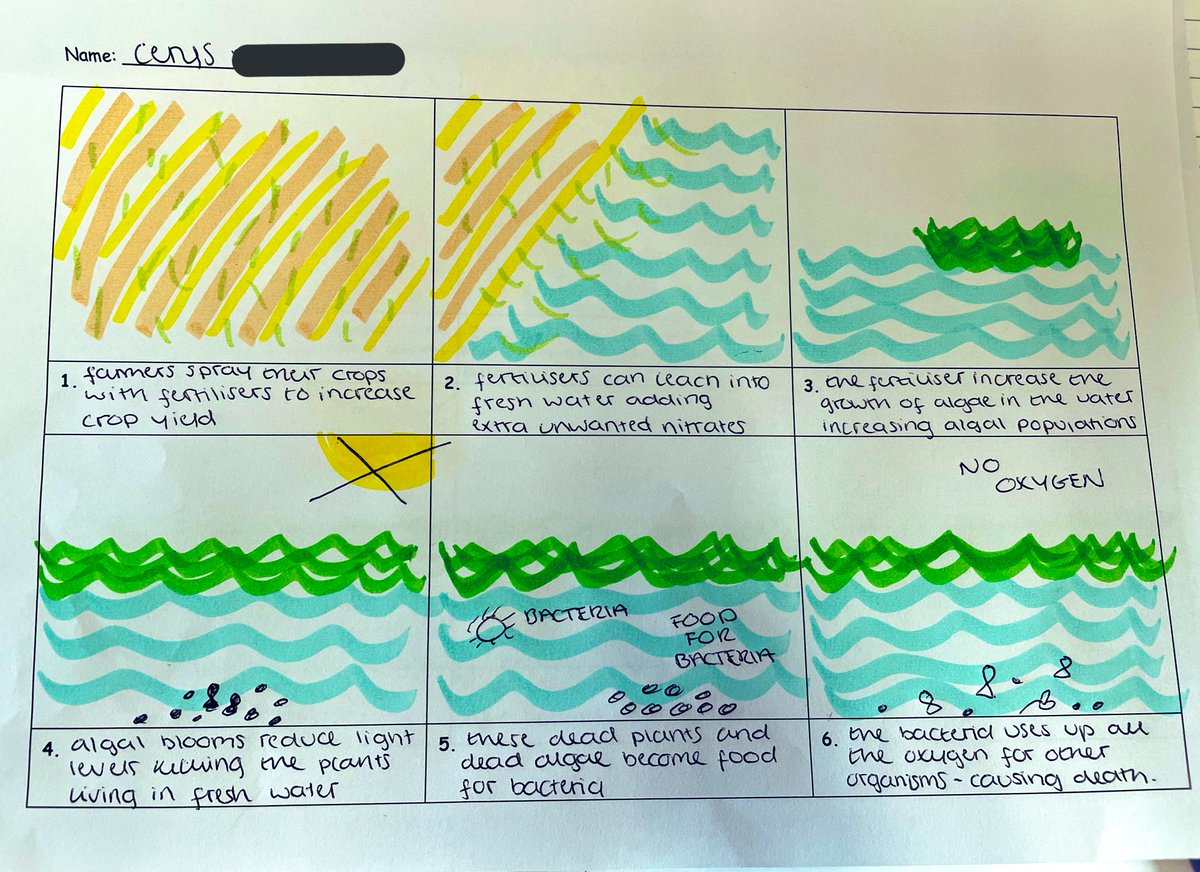 Name: Cerys
1. farmers spray their crops
with fertilisers to increase
crop yield
2. fertilisers can leach into
fresh water adding
extra unwanted nitrates
3. the fertiliser increase the
growth of algae in the water
increasing algal populations
NO
OXYGEN
BACTERIA
FOOD
FOR
BACTERIA
4. algal blooms reduce light
levels killing the plants
living in fresh water
5. these dead plants and
dead algae become food
for bacteria
6. the bacteria uses up all
the oxygen for other
organisms - causing death.